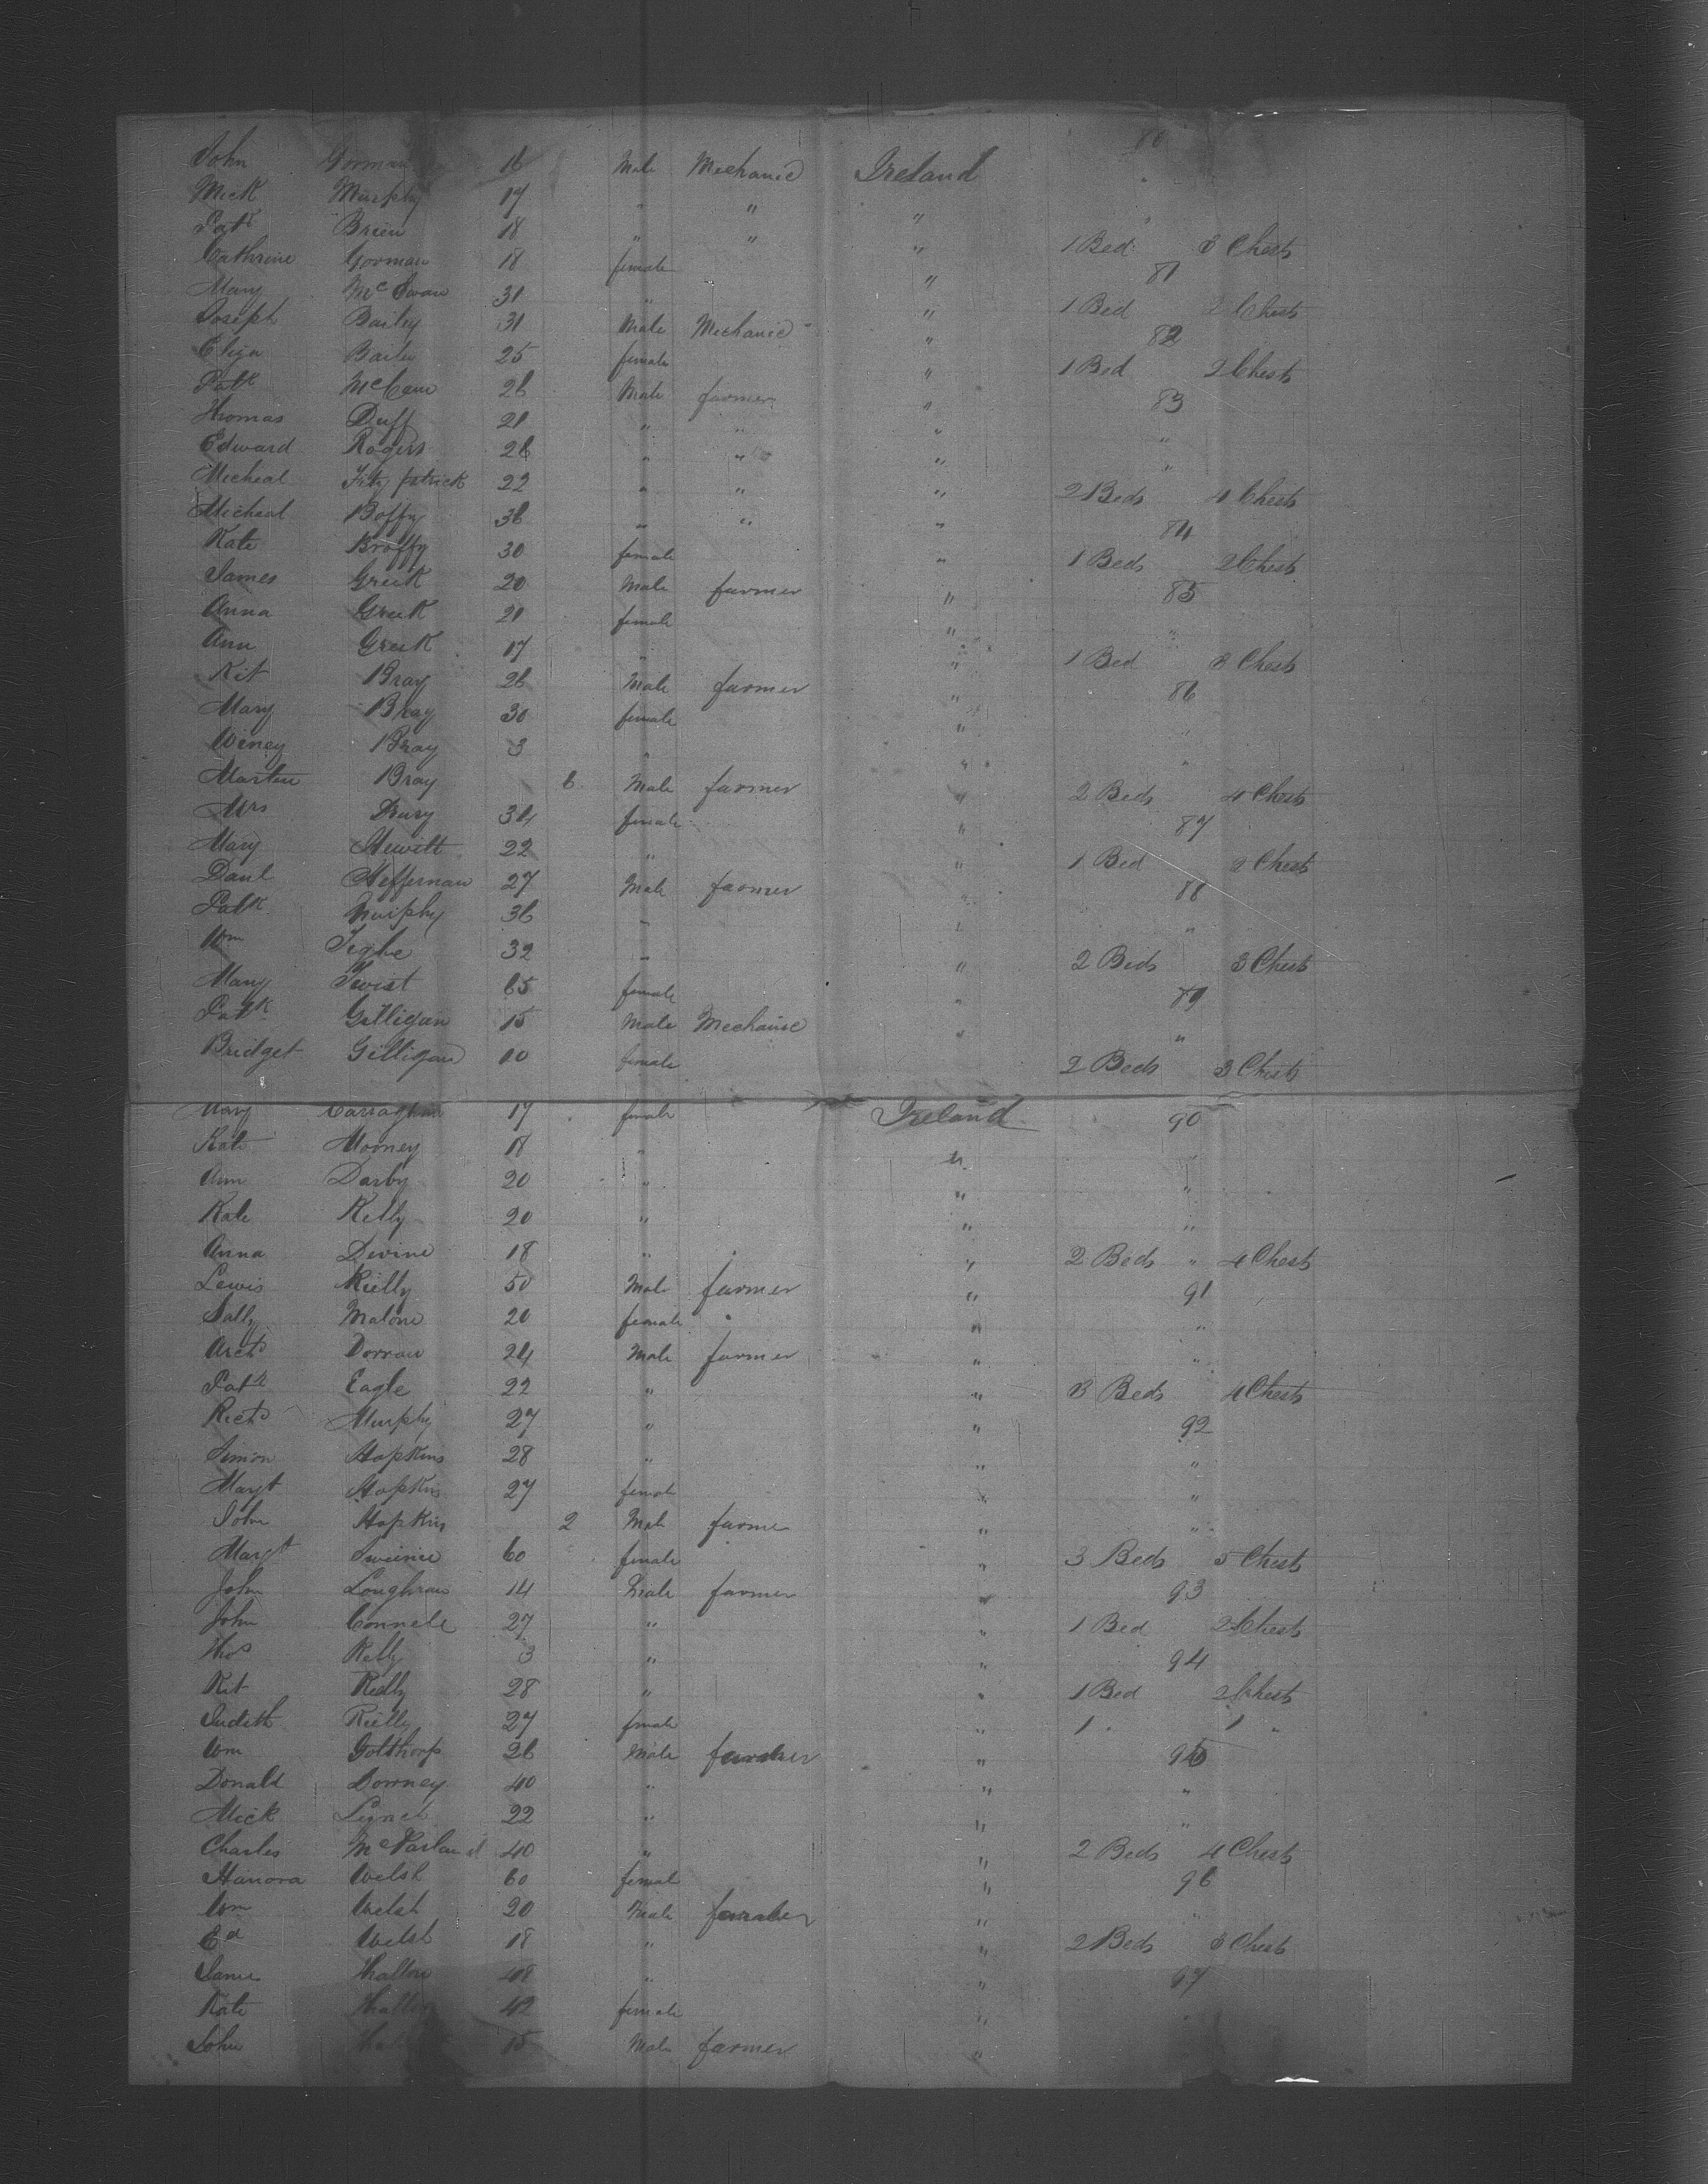 John Gorman 16 Male Mechanic Ireland 80
Mick Murphy 17 " " "
Patk Brien 18 " " " 1 Bed 3 Chests
Cathrine Gorman 18 female " 81
Mary McEwan 31 " " 1 Bed 2 Chests
Joseph Bailey 31 Male Mechanic " 82
Eliza Bailey 25 female " 1 Bed 2 Chests
Patk McCann 26 Male farmer " 83
Thomas Duff 21 " " " "
Edward Rogers 26 " " " "
Micheal Fitzpatrick 22 " " " 2 Beds 4 Chests
Micheal Boffy 36 " " " 84
Kate Broffy 30 female " 1 Beds 2 Chests
James Greek 20 Male farmer " 85
Anna Greek 21 female " "
Ann Greek 17 " " 1 Bed 3 Chests
Kit Bray 26 Male farmer " 86
Mary Bray 30 female " "
Winey Bray 3 " " "
Marten Bray 6 Male farmer " 2 Beds 4 Chests
Mrs Drury 34 female " 87
Mary Hewitt 22 " " 1 Bed 2 Chests
Danl Heffernan 27 Male farmer " 88
Patk Murphy 36 " " "
Wm Tighe 32 " " 2 Beds 3 Chests
Mary Twist 65 female " 89
Patk Gilligan 15 Male Mechanic " "
Bridget Gilligan 10 female 2 Beds 3 Chests
Mary 17 female Ireland 90
Kate Mooney 18 " " "
Ann Darby 20 " " "
Kate Kelly 20 " " "
Anna Devine 18 " " 2 Beds " 4 Chests
Lewis Rielly 50 Male farmer " 91
Sally Malone 20 female " "
Archd Dorran 24 Male farmer " "
Patk Eagle 22 " " 3 Beds 4 Chests
Richd Murphy 27 " " 92
Simon Hopkins 28 " " "
Margt Hopkins 27 female " "
John Hopkins 2 Male farmer " "
Margt 60 female " 3 Beds 5 Chests
John Loughran 14 Male farmer " 93
John Connele 27 " " 1 Bed 2 Chests
Thos Kelly 3 " " 94
Kit Rielly 28 " " 1 Bed 2 Chests
Judith Rielly 27 female " 1 " 1 "
Wm Golthorp 26 Male farmer " 95
Donald Downey 40 " " "
Mick Lynch 22 " " "
Charles McParland 40 " " 2 Beds 4 Chests
Hanora Welsh 60 female " 96
Wm Welsh 20 Male farmer " "
Ed Welsh 18 " " 2 Beds 3 Chests
" " 97
Kate 42 female " "
John 15 Male farmer "